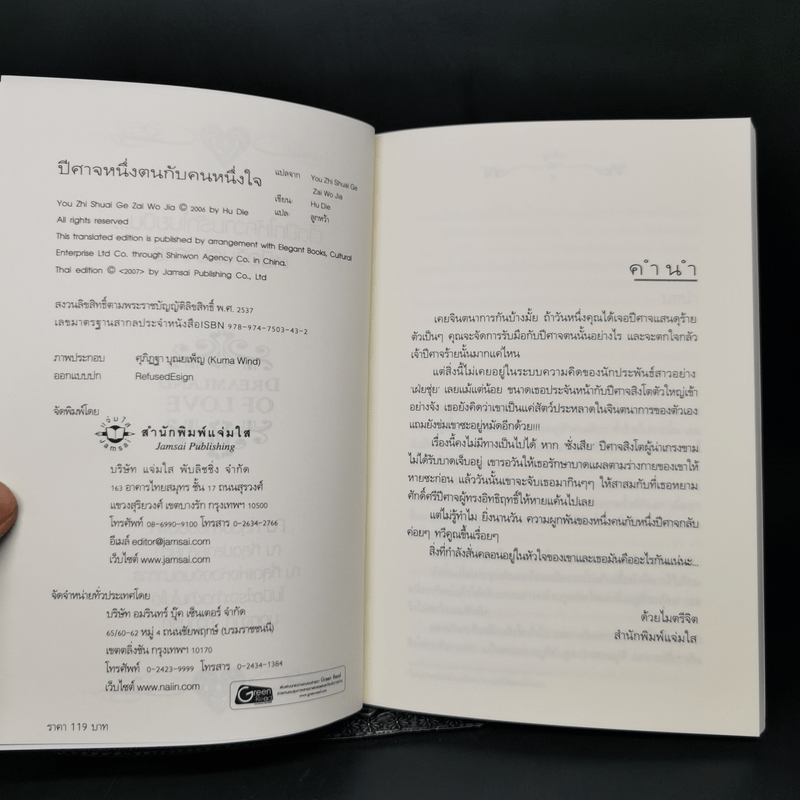 ปีศาจหนึ่งตนกับคนหนึ่งใจ
แปลจาก You Zhi Shuai Ge
Zai Wo Jia
เขียน Hu Die
แปล ลูกหว้า
You Zhi Shuai Ge Zai Wo Jia © 2006 by Hu Die
All rights reserved
This translated edition is published by arrangement with Elegant Books, Cultural
Enterprise Ltd Co. through Shinwon Agency Co. in China.
Thai edition © <2007> by Jamsai Publishing Co., Ltd
สงวนลิขสิทธิ์ตามพระราชบัญญัติลิขสิทธิ์ พ.ศ. 2537
เลขมาตรฐานสากลประจำหนังสือISBN 978-974-7503-43-2
ภาพประกอบ ศุภิฏฐา บุณยเพ็ญ (Kuma Wind)
ออกแบบปก RefusedEsign
จัดพิมพ์โดย
แจ่มใส
Jamsai
สำนักพิมพ์แจ่มใส
Jamsai Publishing
บริษัท แจ่มใส พับลิชชิ่ง จำกัด
163 อาคารไทยสมุทร ชั้น 17 ถนนสุรวงศ์
แขวงสุริยวงศ์ เขตบางรัก กรุงเทพฯ 10500
โทรศัพท์ 08-6990-9100 โทรสาร 0-2634-2766
อีเมล์ editor@jamsai.com
เว็บไซต์ www.jamsai.com
จัดจำหน่ายทั่วประเทศโดย
บริษัท อมรินทร์ บุ๊ค เซ็นเตอร์ จำกัด
65/60-62 หมู่ 4 ถนนชัยพฤกษ์ (บรมราชชนนี)
เขตตลิ่งชัน กรุงเทพฯ 10170
โทรศัพท์ 0-2423-9999 โทรสาร 0-2434-1384
เว็บไซต์ www.naiin.com
Green
Read
ราคา 119 บาท
คำนำ
เคยจินตนาการกันบ้างมั้ย ถ้าวันหนึ่งคุณได้เจอปีศาจแสนดุร้าย
ตัวเป็นๆ คุณจะจัดการรับมือกับปีศาจตนนั้นอย่างไร และจะตกใจกลัว
เจ้าปีศาจร้ายนั้นมากแค่ไหน
แต่สิ่งนี้ไม่เคยอยู่ในระบบความคิดของนักประพันธ์สาวอย่าง
'เฝยชุ่ย' เลยแม้แต่น้อย ขนาดเธอประจันหน้ากับปีศาจสิงโตตัวใหญ่เข้า
อย่างจัง เธอยังคิดว่าเขาเป็นแค่สัตว์ประหลาดในจินตนาการของตัวเอง
แถมยังข่มเขาซะอยู่หมัดอีกด้วย!!!
เรื่องนี้คงไม่มีทางเป็นไปได้ หาก 'ซั่งเสีย' ปีศาจสิงโตผู้น่าเกรงขาม
ไม่ได้รับบาดเจ็บอยู่ เขารอวันให้เธอรักษาบาดแผลตามร่างกายของเขาให้
หายซะก่อน แล้ววันนั้นเขาจะจับเธอมากินๆๆ ให้สาสมกับที่เธอหยาม
ศักดิ์ศรีปีศาจผู้ทรงอิทธิฤทธิ์ให้หายแค้นไปเลย
แต่ไม่รู้ทำไม ยิ่งนานวัน ความผูกพันของหนึ่งคนกับหนึ่งปีศาจกลับ
ค่อยๆ ทวีคูณขึ้นเรื่อยๆ
สิ่งที่กำลังสั่นคลอนอยู่ในหัวใจของเขาและเธอมันคืออะไรกันแน่นะ...
ด้วยไมตรีจิต
สำนักพิมพ์แจ่มใส